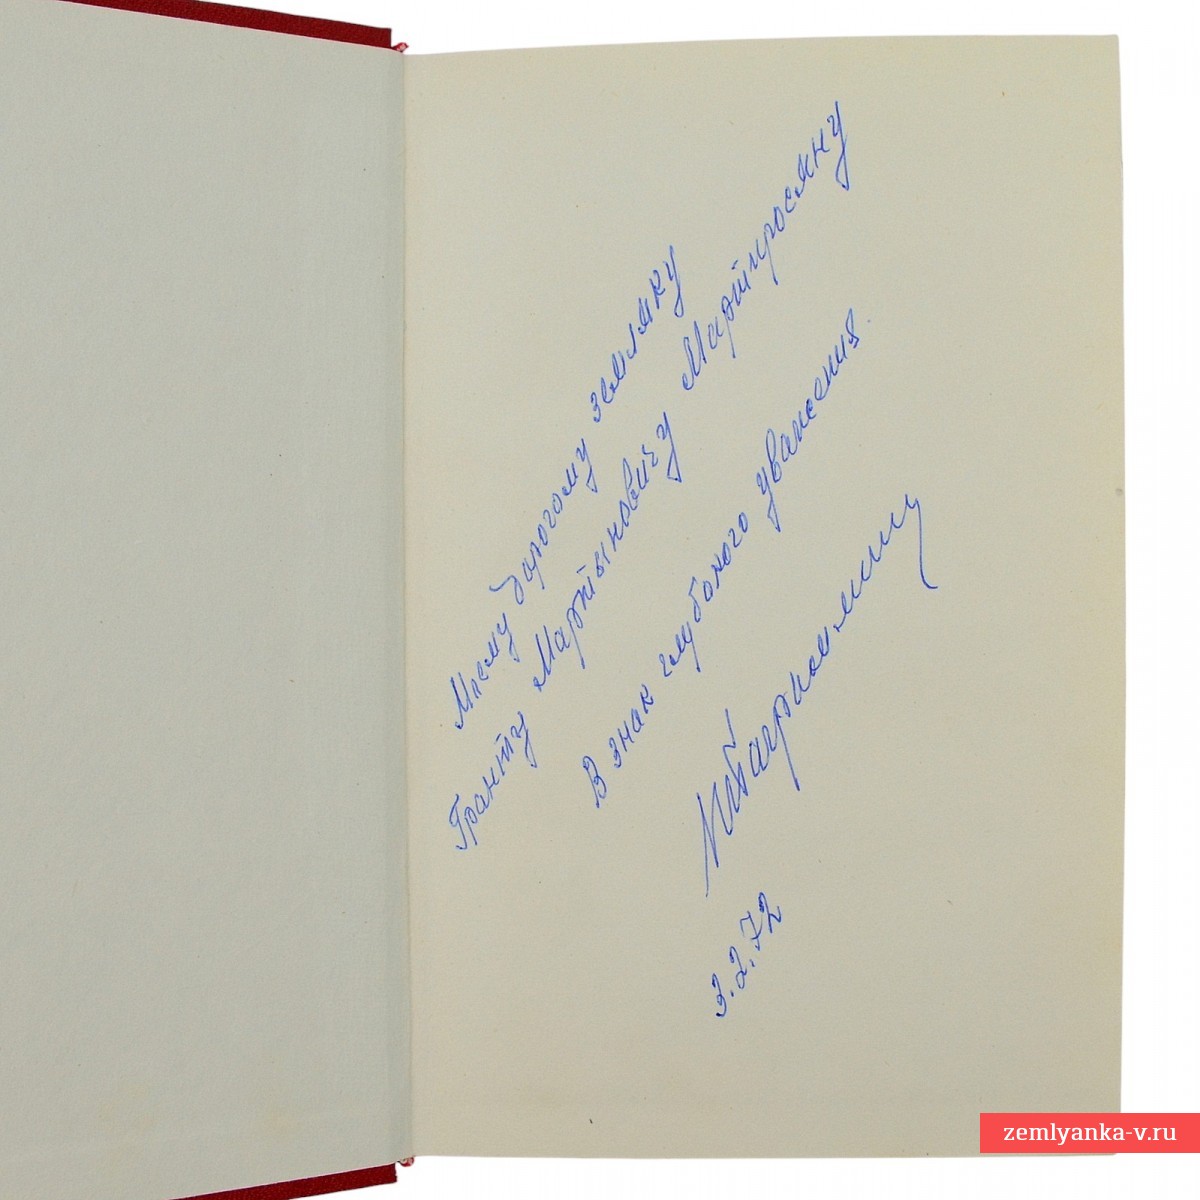 Моему дорогому земляку
Гранту Мартыновичу Мартиросяну
В знак глубокого уважения.
3.2.72
zemlyanka-v.ru